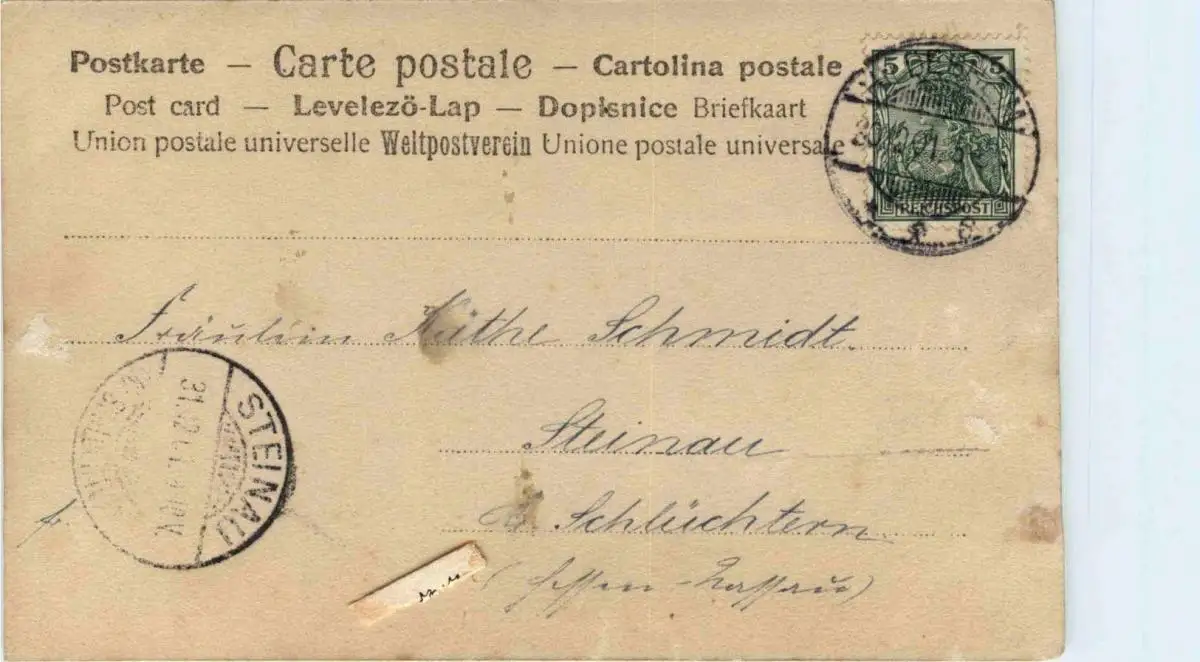 Postkarte — Carte postale — Cartolina postale
Post card — Levelező-Lap — Dopisnice Briefkaart
Union postale universelle Weltpostverein Unione postale universale
5 5
REICHSPOST
Fräulein Käthe Schmidt
Steinau
Schlüchtern
(Hessen-Nassau)
STEINAU